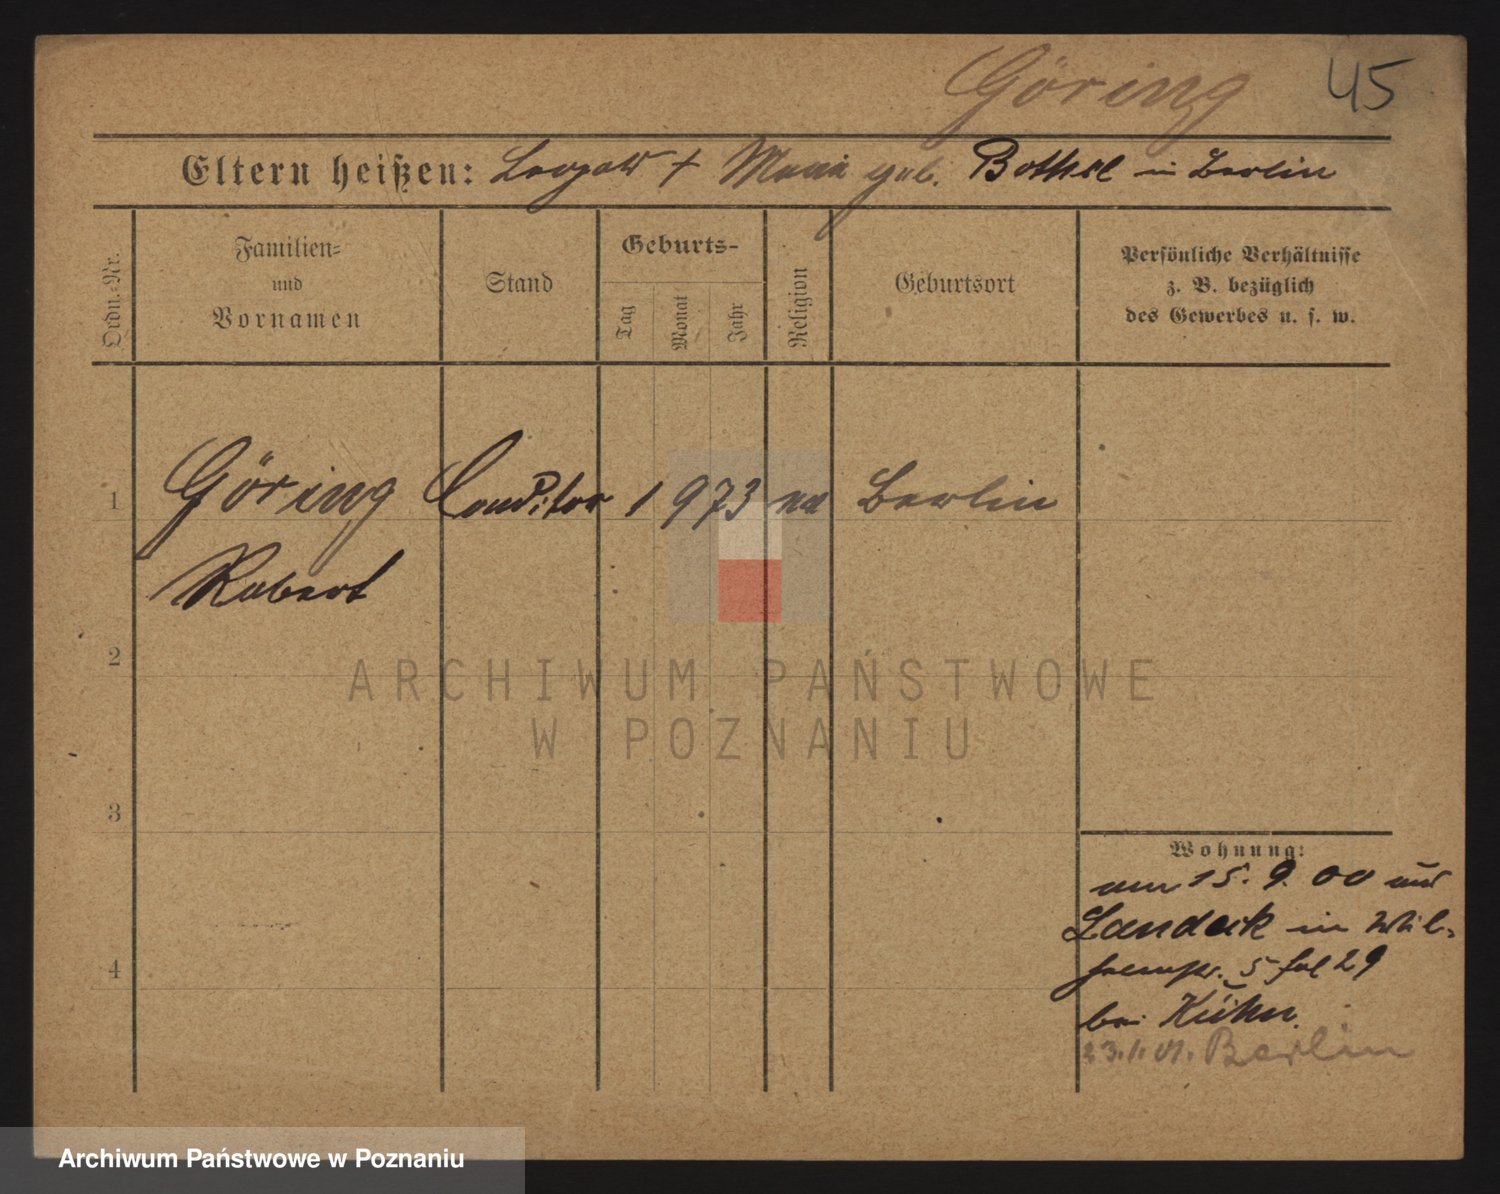 Göring 45
Eltern heißen: Leopold † Maria geb. Bothel in Berlin
Ordn.-Nr.
Familien-
und
Vornamen
Stand
Geburts-
Tag
Monat
Jahr
Religion
Geburtsort
Persönliche Verhältnisse
z. B. bezüglich
des Gewerbes u. s. w.
1 Göring Conditor 1 9 73 ev Berlin
Robert
2
ARCHIWUM PAŃSTWOWE
W POZNANIU
3
Wohnung:
am 15. 9. 00 aus
Landeck in Wil-
helmstr. 5 fol 29
bei Kühn.
23. 1. 01. Berlin
4
Archiwum Państwowe w Poznaniu